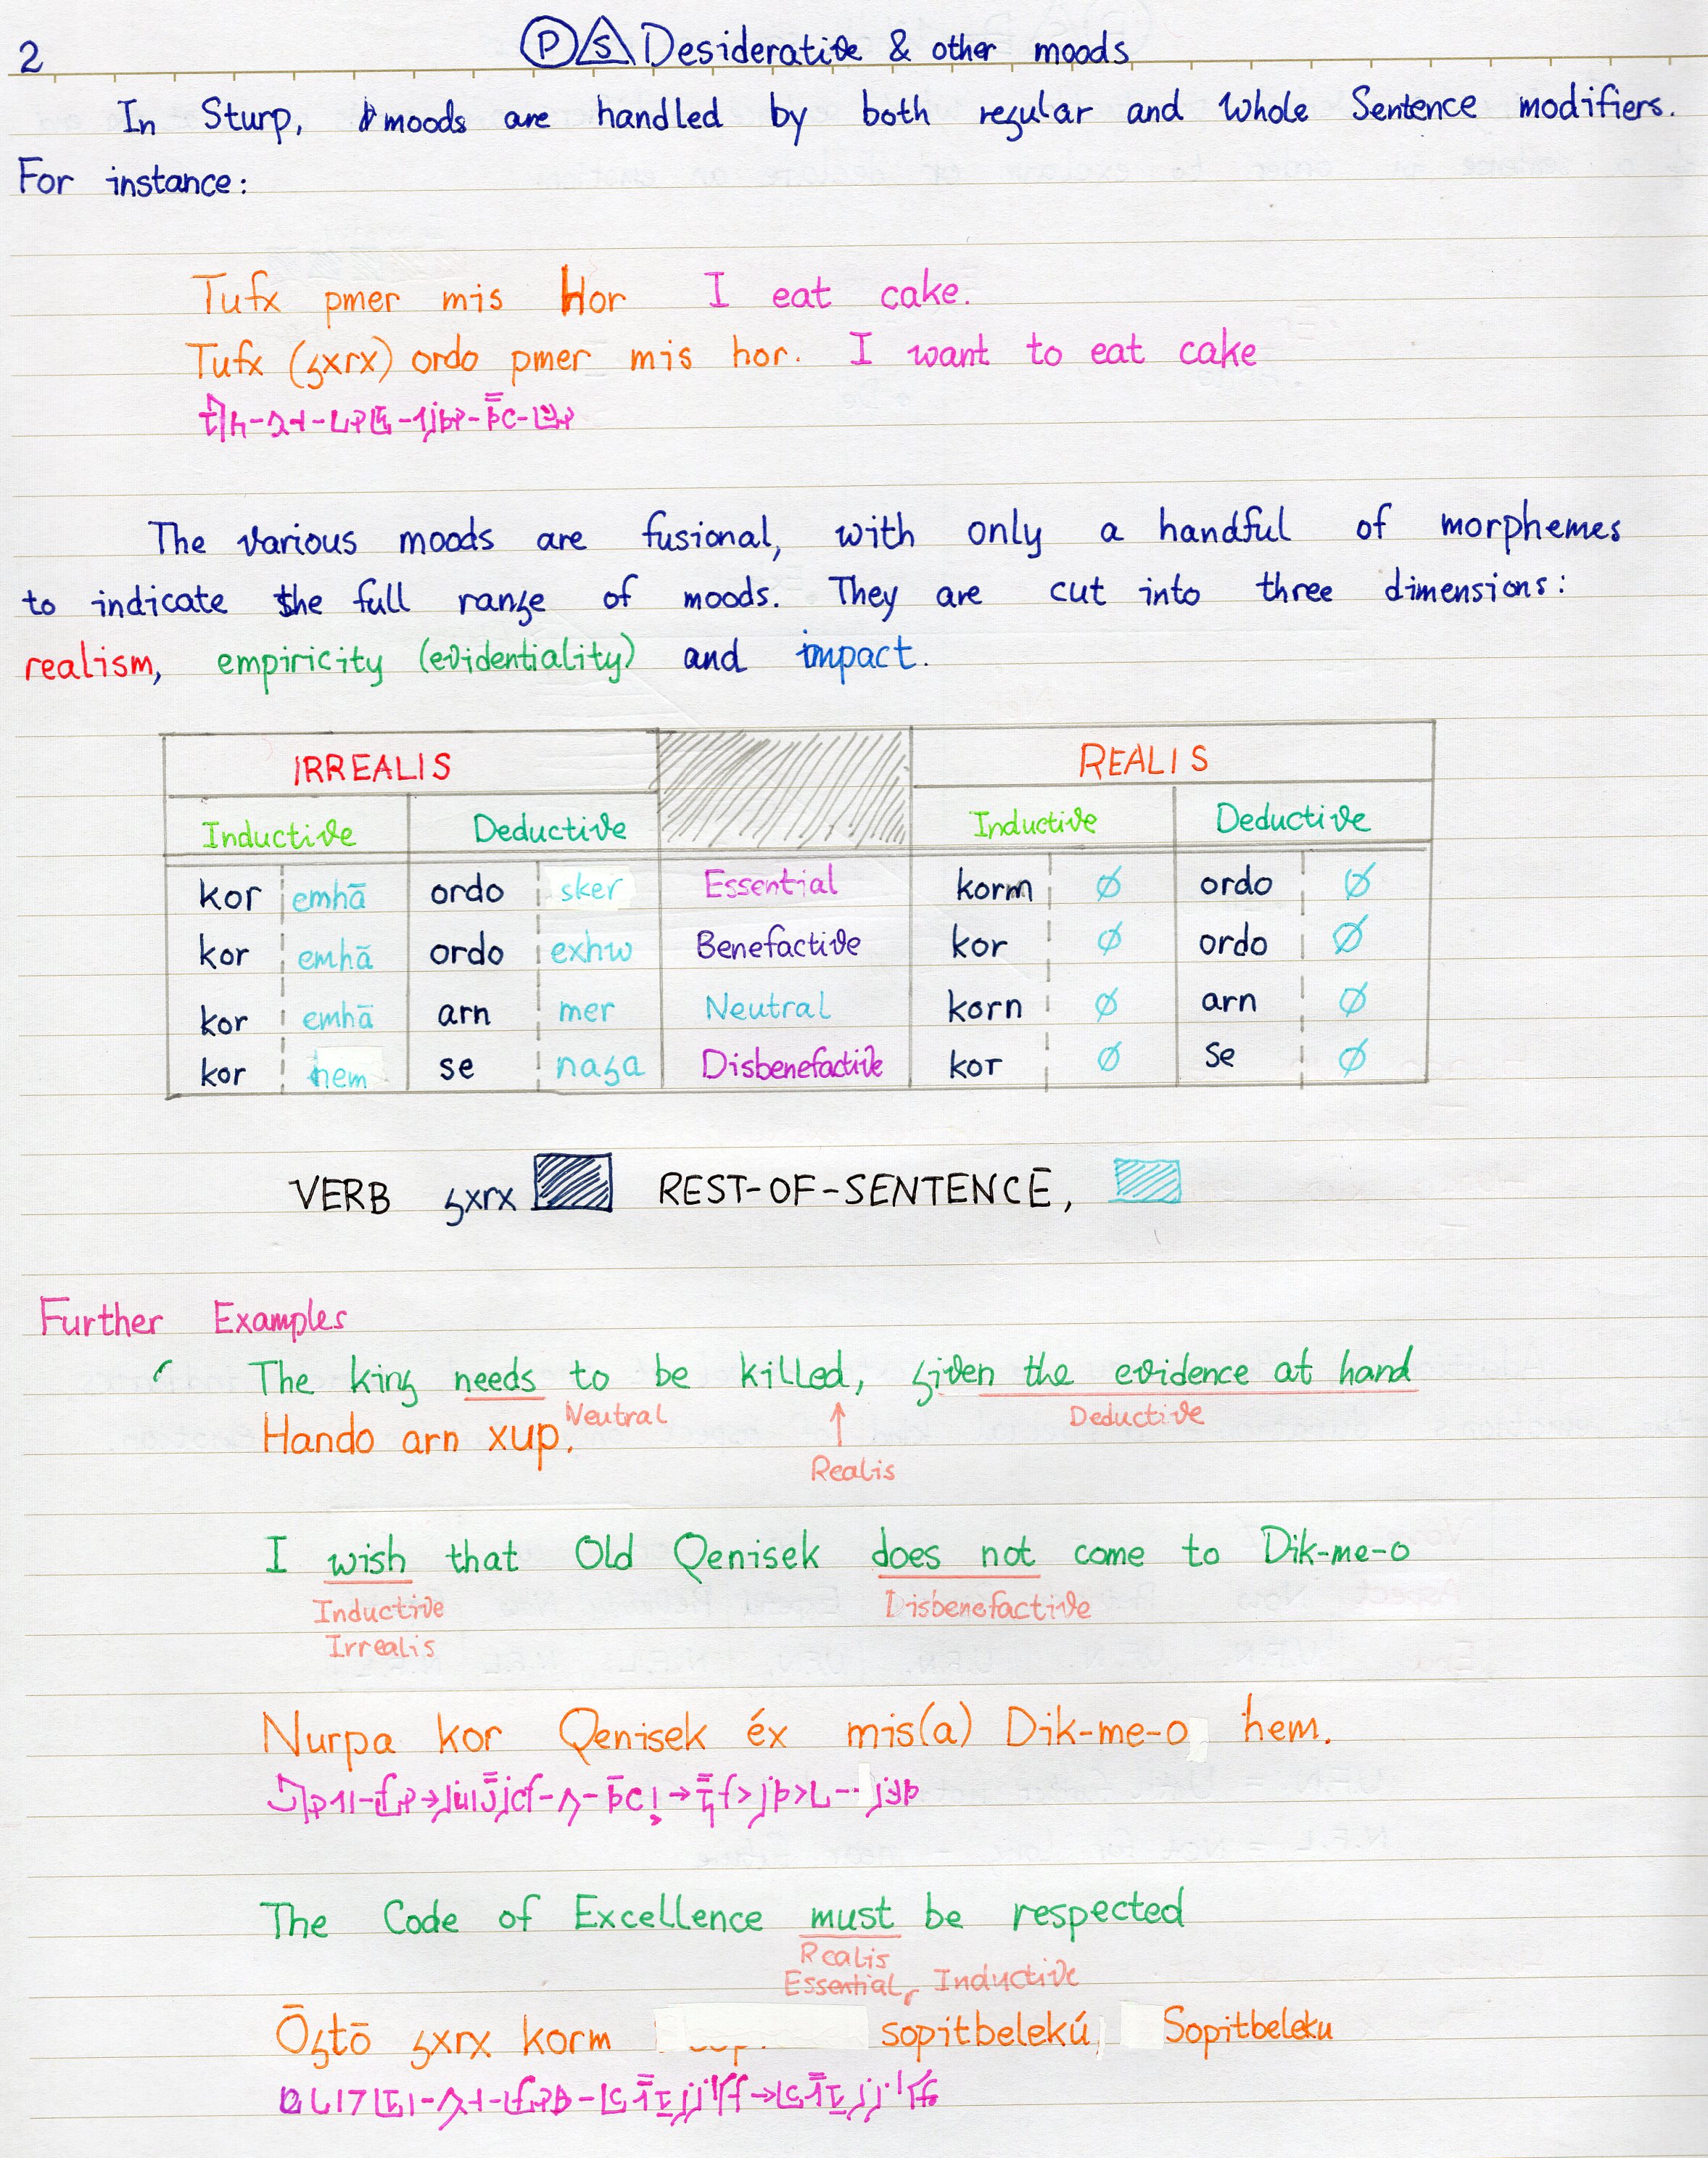 2 P S Desiderative & other moods
In Sturp, moods are handled by both regular and Whole Sentence modifiers.
For instance:
Tufx pmer mis Hor I eat cake.
Tufx (ʒxrx) ordo pmer mis hor. I want to eat cake
The various moods are fusional, with only a handful of morphemes
to indicate the full range of moods. They are cut into three dimensions:
realism, empiricity (evidentiality) and impact.
IRREALIS REALIS
Inductive Deductive Inductive Deductive
kor emhā ordo sker Essential korm ∅ ordo ∅
kor emhā ordo exhw Benefactive kor ∅ ordo ∅
kor emhā arn mer Neutral korn ∅ arn ∅
kor hem se naʒa Disbenefactive kor ∅ se ∅
VERB ʒxrx REST-OF-SENTENCE,
Further Examples
The king needs to be killed, given the evidence at hand
Neutral Deductive
Hando arn xup.
Realis
I wish that Old Qenisek does not come to Dik-me-o
Inductive Disbenefactive
Irrealis
Nurpa kor Qenisek éx mis(a) Dik-me-o hem.
The Code of Excellence must be respected
Realis
Essential, Inductive
Ōʒtō ʒxrx korm sopitbelekú, Sopitbeleku